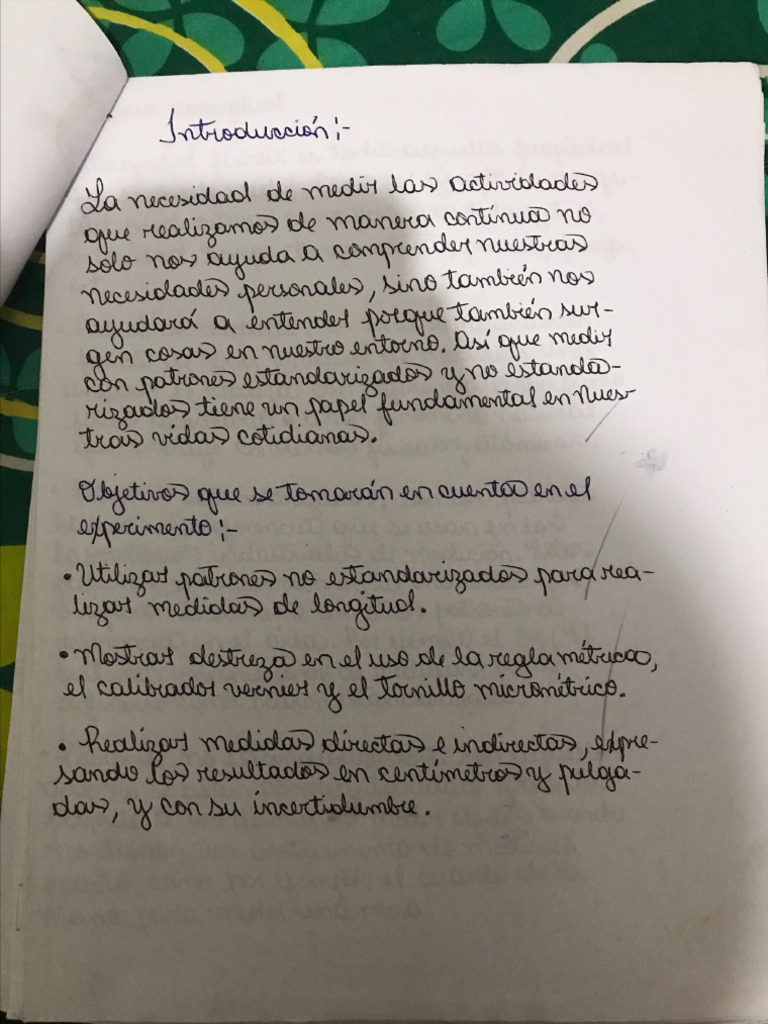 Introducción:-
La necesidad de medir las actividades
que realizamos de manera contínua no
solo nos ayuda a comprender nuestras
necesidades personales, sino también nos
ayudará a entender porque también sur-
gen cosas en nuestro entorno. Así que medir
con patrones estandarizados y no estanda-
rizados tiene un papel fundamental en nues-
tras vidas cotidianas.
Objetivos que se tomarán en cuenta en el
experimento:-
• Utilizar patrones no estandarizados para rea-
lizar medidas de longitud.
• Mostrar destreza en el uso de la regla métrica,
el calibrador vernier y el tornillo micrométrico.
• Realizar medidas directas e indirectas, expre-
sando los resultados en centímetros y pulga-
das, y con su incertidumbre.